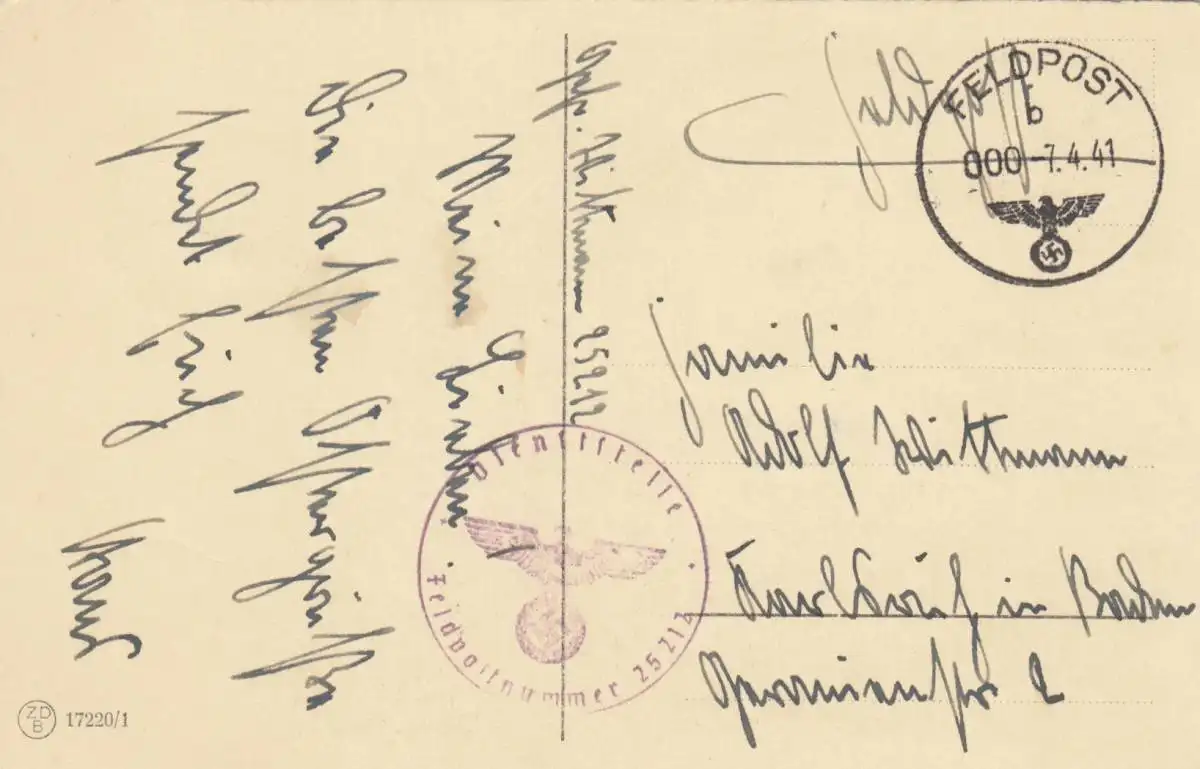 Gefr. Wittmann 25212
Meine Lieben!
Die besten Ostergrüße
sendet Euch
Feldpost
FELDPOST
b
000 -7.4.41
Familie
Adolf Wittmann
in Baden
2
Dienststelle
Feldpostnummer 25212
ZDB 17220/1